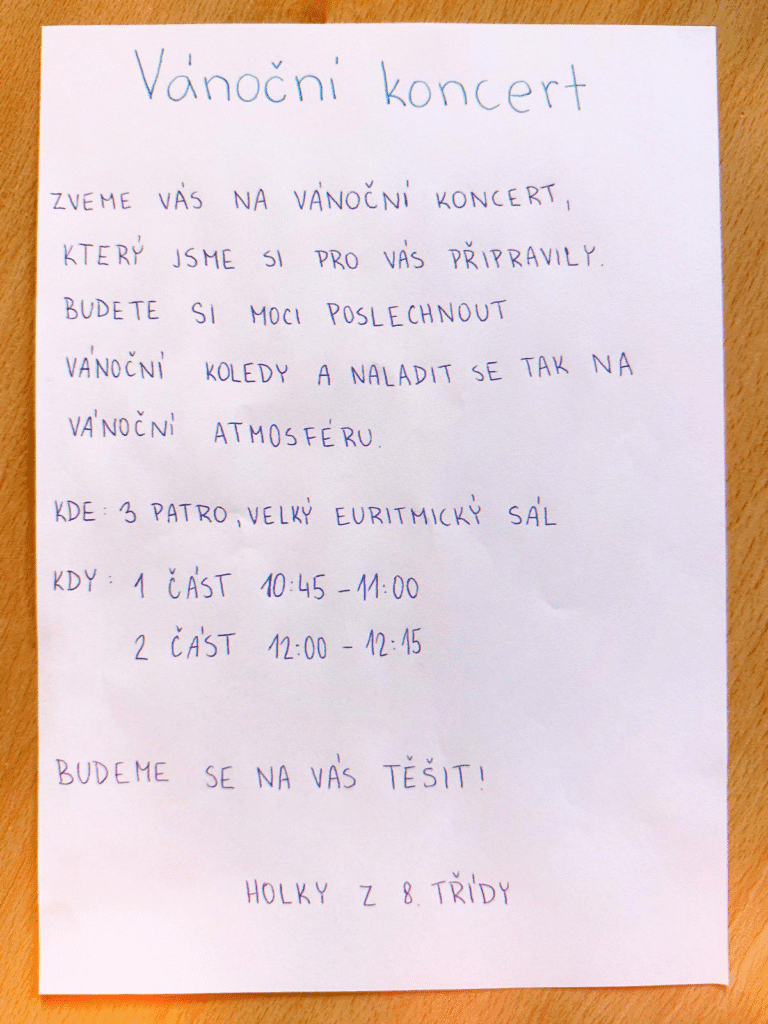 Vánoční koncert
ZVEME VÁS NA VÁNOČNÍ KONCERT,
KTERÝ JSME SI PRO VÁS PŘIPRAVILY.
BUDETE SI MOCI POSLECHNOUT
VÁNOČNÍ KOLEDY A NALADIT SE TAK NA
VÁNOČNÍ ATMOSFÉRU.
KDE: 3 PATRO, VELKÝ EURITMICKÝ SÁL
KDY: 1 ČÁST 10:45 - 11:00
2 ČÁST 12:00 - 12:15
BUDEME SE NA VÁS TĚŠIT!
HOLKY Z 8. TŘÍDY